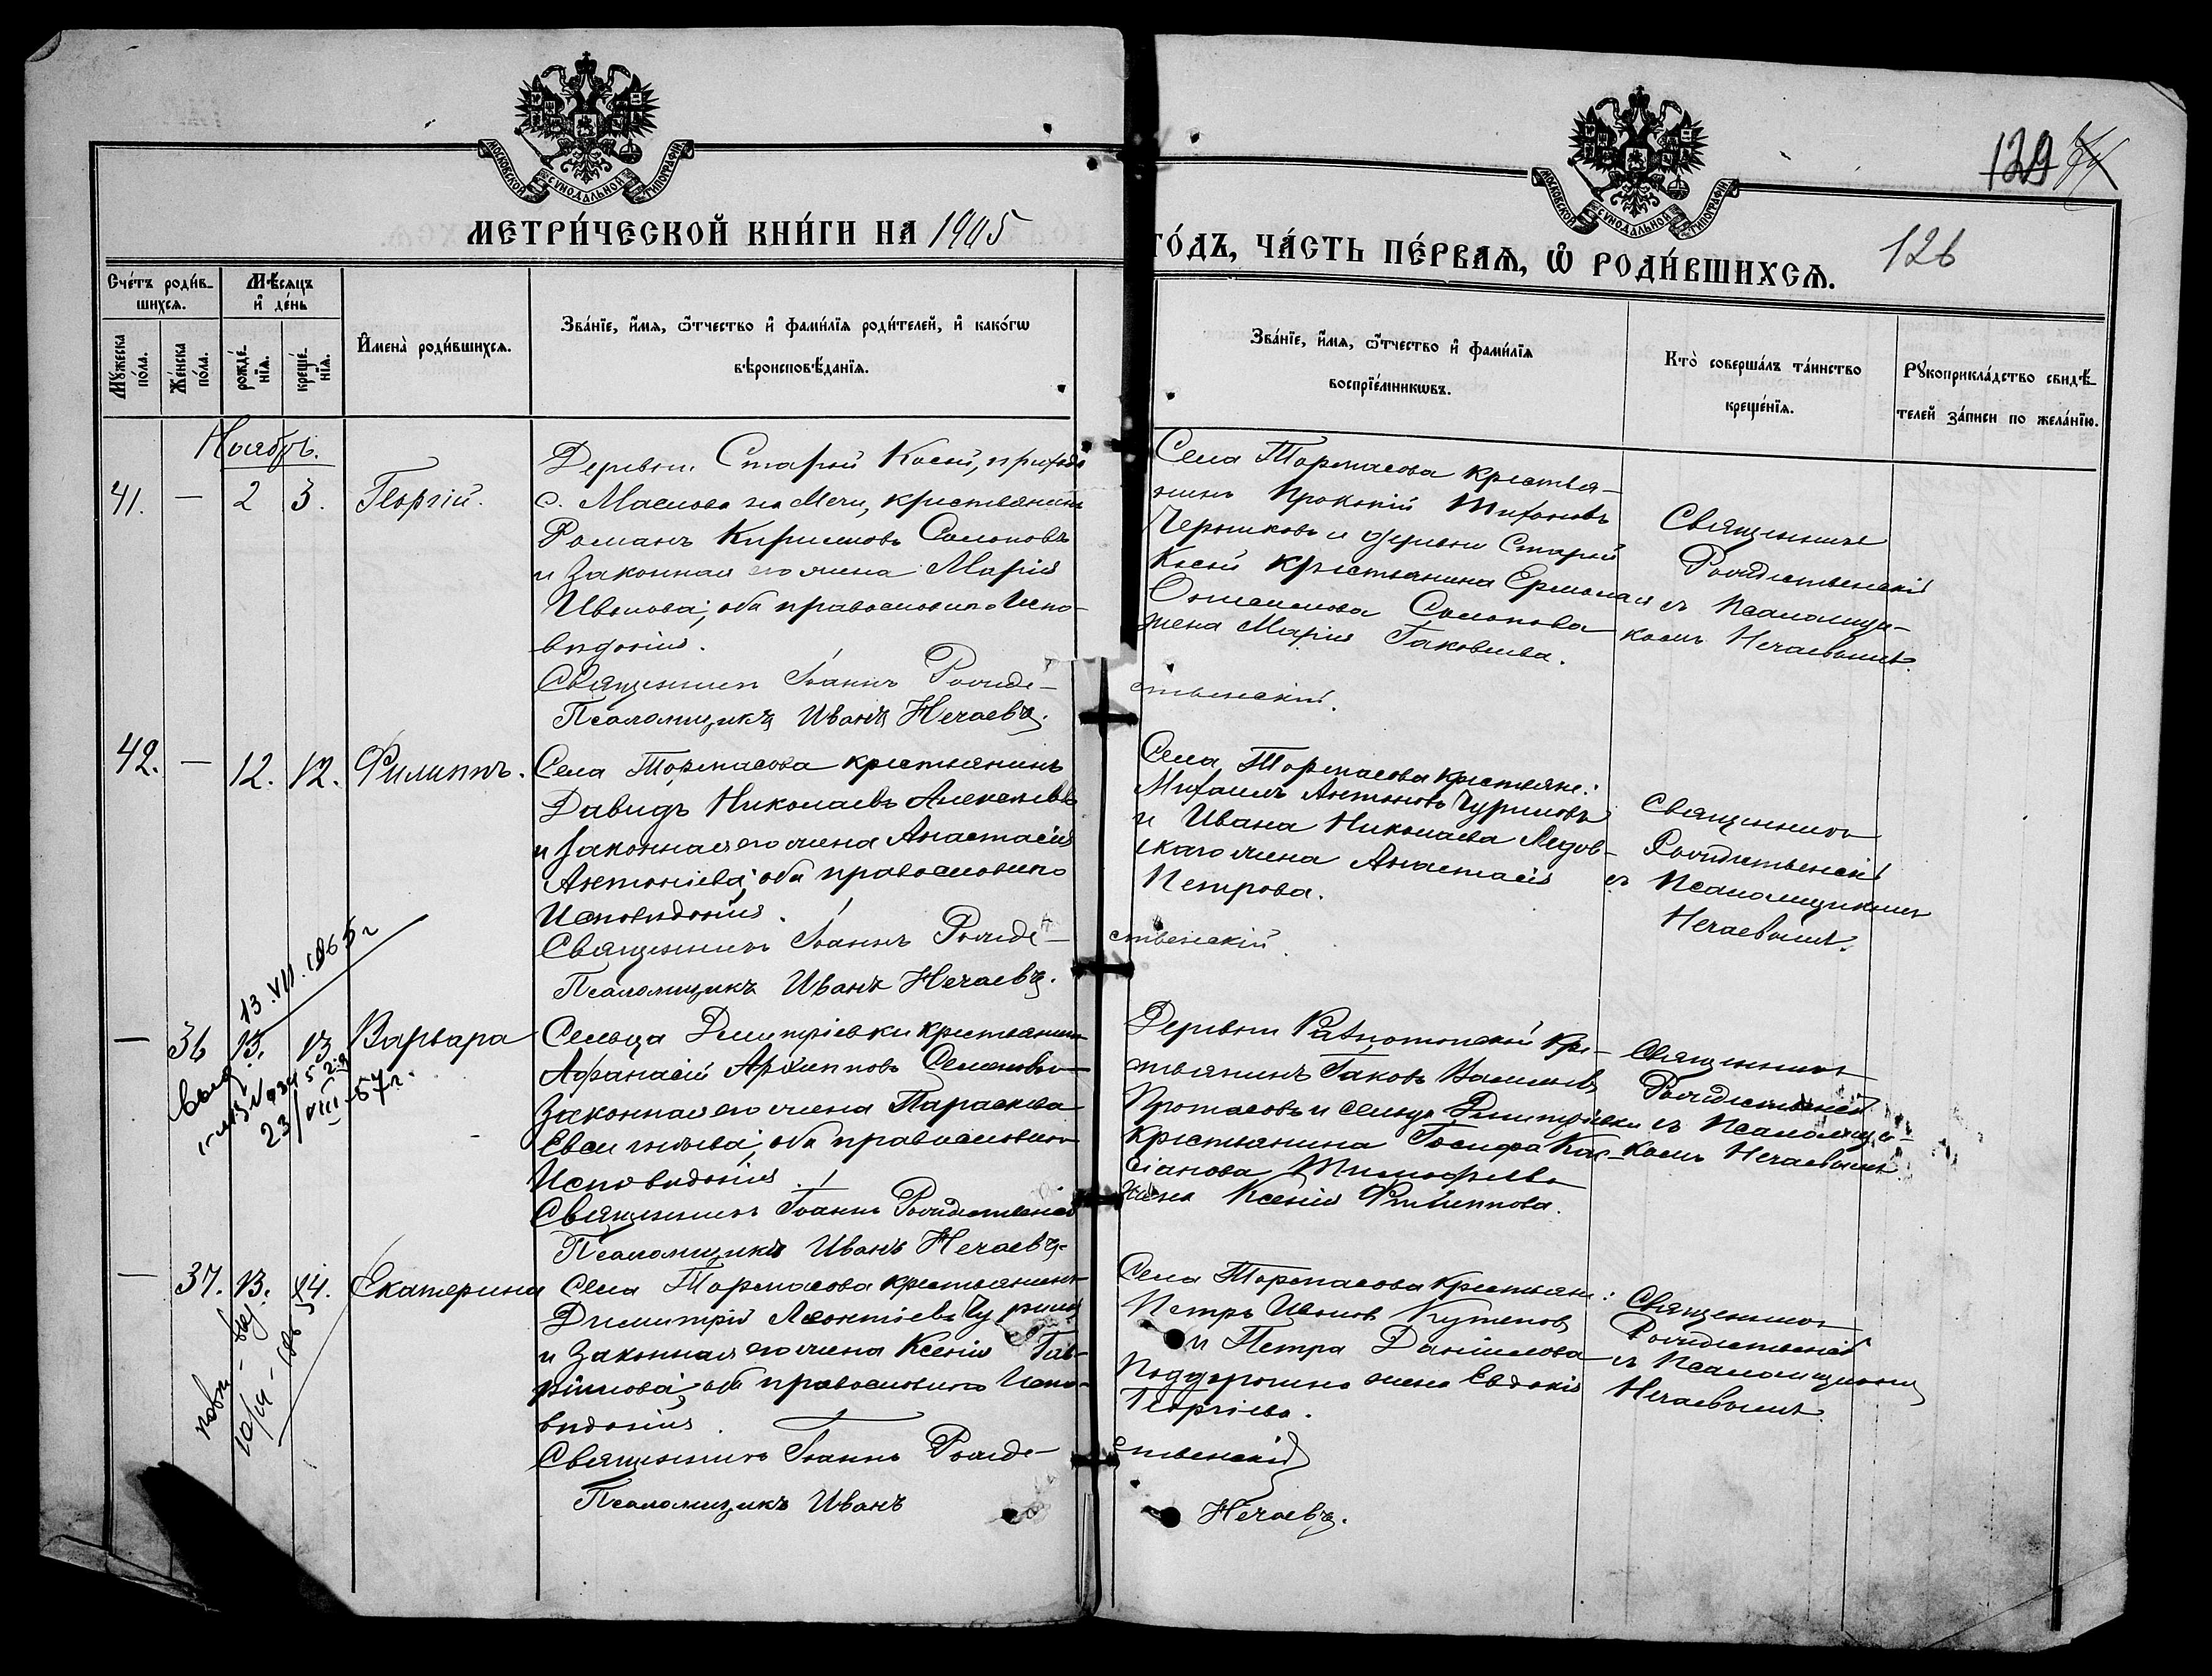 МОСКОВСКОЙ СѴНОДАЛЬНОЙ ТИПОГРАФІИ
МОСКОВСКОЙ СѴНОДАЛЬНОЙ ТИПОГРАФІИ
129
МЕТРИ́ЧЕСКОЙ КНИ́ГИ НА 1905
ГО́ДЪ, ЧА́СТЬ ПЕ́РВАЯ, Ѡ҆ РОДИ́ВШИХСЯ.
126
Сче́тъ роди́в-
шихся.
Мѣ́сяцъ
и҆ де́нь
Мꙋ́жеска
по́ла.
Же́нска
по́ла.
рожде́-
нїя.
креще́-
нїя.
И҆мена̀ роди́вшихся.
Зва́нїе, и҆́мя, ѻ҆́тчество и҆ фами́лїя роди́телей, и҆ како́гѡ
вѣроисповѣ́данїя.
Зва́нїе, и҆́мя, ѻ҆́тчество и҆ фами́лїя
воспрїе́мникѡвъ.
Кто̀ соверша́лъ та́инство
креще́нїя.
Рꙋкоприкла́дство свидѣ́-
телей за́писи по жела́нїю.
Ноябрь.
41. — 2 3. Георгій.
Деревни Старой Косой, прихода
с. Маслова на Мечи, крестьянинъ
Романъ Кирилловъ Солоповъ
и законная его жена Марія
Ивлиова; оба православнаго испо-
вѣданія.
Священникъ Іоаннъ Рожде-
ственскій.
Псаломщикъ Иванъ Нечаевъ.
Села Тормасова крестья-
нинъ Прокопій Тихоновъ
Черниковъ и деревни Старой
Косой крестьянина Ермолая
Солопова
жена Марія Іаковлева.
Священникъ
Рождественскій
съ псаломщи-
комъ Нечаевымъ.
42. — 12. 12. Филиппъ.
Села Тормасова крестьянинъ
Давидъ Николаевъ Алексѣевъ
и законная его жена Анастасія
Антоніева; оба православнаго
исповѣданія.
Священникъ Іоаннъ Рожде-
ственскій.
Псаломщикъ Иванъ Нечаевъ.
Села Тормасова крестьяне:
Михаилъ Антоновъ Чуриловъ
и Ивана Николаева Ледов-
скаго жена Анастасія
Петрова.
Священникъ
Рождественскій
съ псаломщикомъ
Нечаевымъ.
13.VIII.1965 г
— 36 13. 13 Варвара
23/VIII-57г.
Сельца Дмитріевки крестьянинъ
Афанасій Архипповъ Семеновъ
законная его жена Параскева
Евсигнѣева; оба православнаго
исповѣданія.
Священникъ Іоаннъ Рождественскій
Псаломщикъ Иванъ Нечаевъ.
Деревни кре-
стьянинъ Іаковъ Васильевъ
Протасовъ и сельца Дмитріевки
крестьянина Іосифа Кас-
сіанова Тимофеева
жена Ксенія Филиппова.
Священникъ
Рождественскій
съ псаломщи-
комъ Нечаевымъ
— 37. 13. 14. Екатерина
Села Тормасова крестьянинъ
Димитрій Леонтіевъ Чуриловъ
и законная его жена Ксенія Гав-
рiилова; оба православнаго испо-
вѣданія.
Священникъ Іоаннъ Рожде-
ственскій
Псаломщикъ Иванъ
Нечаевъ.
Села Тормасова крестьяне:
Петръ Ивановъ Кутеповъ
и Петра Даніилова
жена Евдокія
Георгіева.
Священникъ
Рождественскій
съ псаломщикомъ
Нечаевымъ.